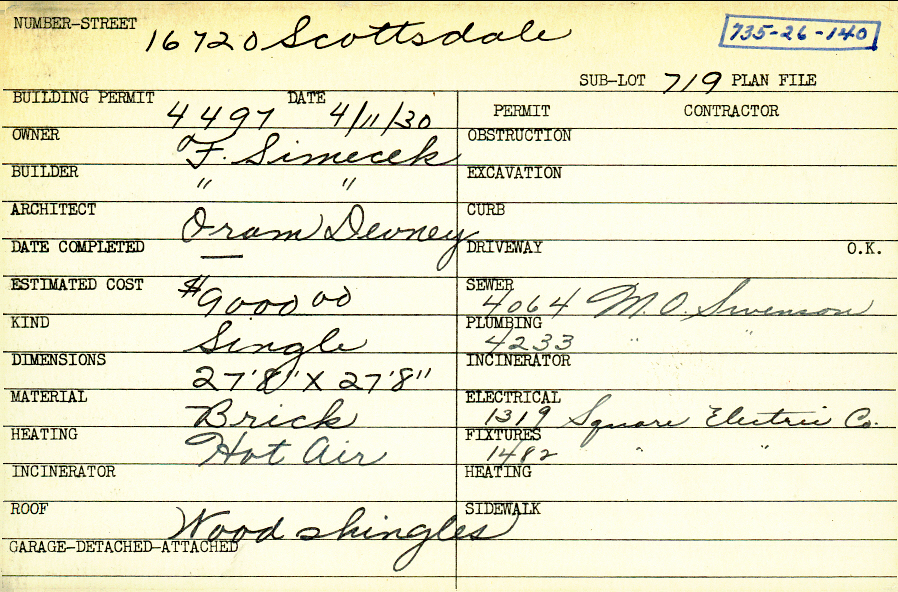 NUMBER-STREET 16720 Scottsdale
735-26-140
SUB-LOT 719 PLAN FILE
BUILDING PERMIT 4497 DATE 4/11/30
PERMIT CONTRACTOR
OWNER F. Simecek
OBSTRUCTION
BUILDER " "
EXCAVATION
ARCHITECT Oram Devney
CURB
DATE COMPLETED —
DRIVEWAY O.K.
ESTIMATED COST $9000 00
SEWER 4064 M.O. Swenson
KIND Single
PLUMBING 4233 " "
DIMENSIONS 27'8" X 27'8"
INCINERATOR
MATERIAL Brick
ELECTRICAL 1319 Square Electric Co.
HEATING Hot Air
FIXTURES 1482 " "
INCINERATOR
HEATING
ROOF Wood shingles
SIDEWALK
GARAGE-DETACHED-ATTACHED